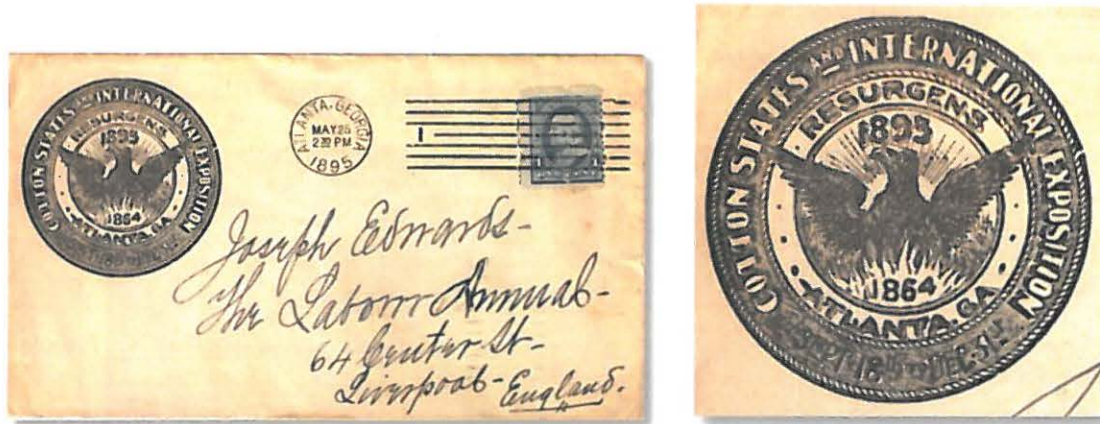 COTTON STATES AND INTERNATIONAL EXPOSITION
RESURGENS
1895
1864
ATLANTA, GA
ATLANTA, GEORGIA
MAY 25
2 30 PM
1895
1
Joseph Edwards-
The Labour Annual-
64 Center St-
Liverpool- England.
COTTON STATES AND INTERNATIONAL EXPOSITION
RESURGENS
1895
1864
ATLANTA, GA
SEPT 18TH TO DEC 31ST